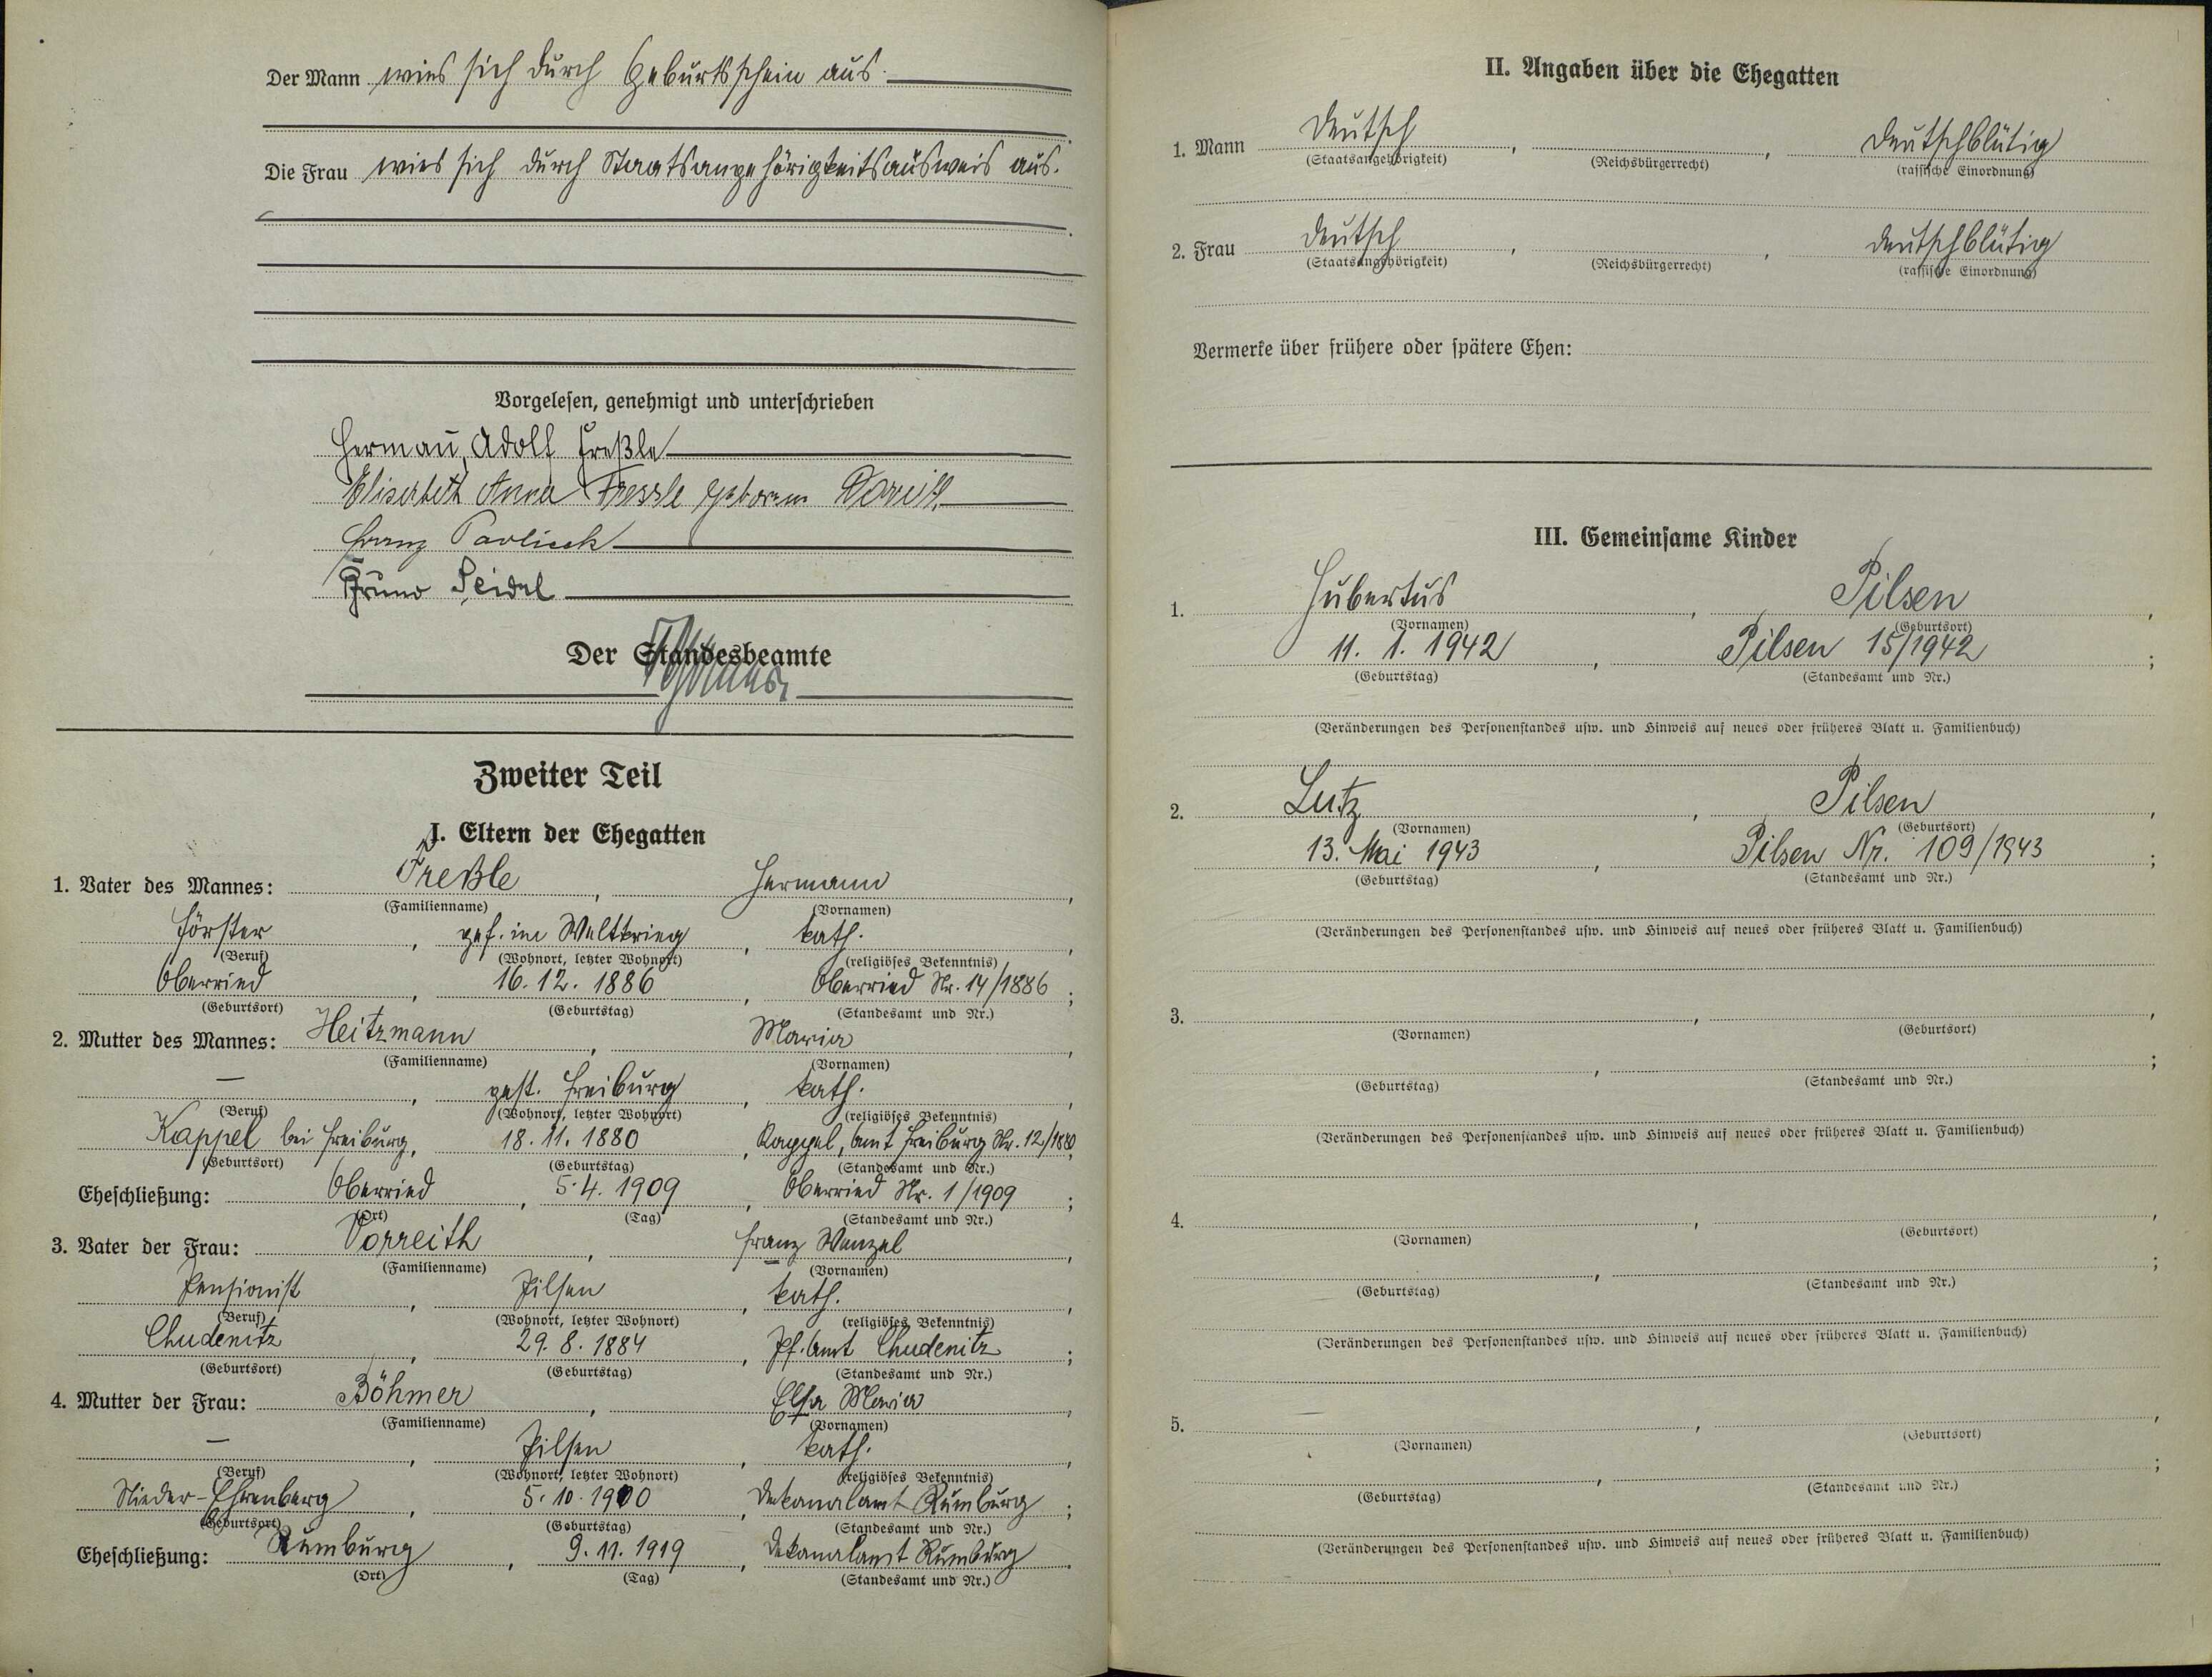 Der Mann wies sich durch Geburtsschein aus.
Die Frau wies sich durch Staatsangehörigkeitsausweis aus.
Vorgelesen, genehmigt und unterschrieben
Hermañ Adolf Freßle
Elisabeth Anna Fressle geborene
Franz Pavlicek
Bruno Seidel
Der Standesbeamte
Zweiter Teil
I. Eltern der Ehegatten
1. Vater des Mannes: Freßle, Hermann,
(Familienname) (Vornamen)
Förster, gef. im Weltkrieg, kath.,
(Beruf) (Wohnort, letzter Wohnort) (religiöses Bekenntnis)
Oberried, 16. 12. 1886, Oberried Nr. 14/1886;
(Geburtsort) (Geburtstag) (Standesamt und Nr.)
2. Mutter des Mannes: Heitzmann, Maria,
(Familienname) (Vornamen)
—, gest. Freiburg, kath.,
(Beruf) (Wohnort, letzter Wohnort) (religiöses Bekenntnis)
Kappel bei Freiburg, 18. 11. 1880, Kappel, Amt Freiburg Nr. 12/1880,
(Geburtsort) (Geburtstag) (Standesamt und Nr.)
Eheschließung: Oberried, 5. 4. 1909, Oberried Nr. 1/1909;
(Ort) (Tag) (Standesamt und Nr.)
3. Vater der Frau: Vorreith, Franz Wenzel,
(Familienname) (Vornamen)
Pensionist, Pilsen, kath.,
(Beruf) (Wohnort, letzter Wohnort) (religiöses Bekenntnis)
Chudenitz, 29. 8. 1884, Pf. Amt Chudenitz;
(Geburtsort) (Geburtstag) (Standesamt und Nr.)
4. Mutter der Frau: Böhmer, Elsa Maria,
(Familienname) (Vornamen)
—, Pilsen, kath.,
(Beruf) (Wohnort, letzter Wohnort) (religiöses Bekenntnis)
Nieder-Ehrenberg, 5. 10. 1900, Dekanalamt Rumburg;
(Geburtsort) (Geburtstag) (Standesamt und Nr.)
Eheschließung: Rumburg, 9. 11. 1919, Dekanalamt Rumburg.
(Ort) (Tag) (Standesamt und Nr.)
II. Angaben über die Ehegatten
1. Mann Deutsch, , deutschblütig
(Staatsangehörigkeit) (Reichsbürgerrecht) (rassische Einordnung)
2. Frau Deutsch, , deutschblütig
(Staatsangehörigkeit) (Reichsbürgerrecht) (rassische Einordnung)
Vermerke über frühere oder spätere Ehen:
III. Gemeinsame Kinder
1. Hubertus, Pilsen,
(Vornamen) (Geburtsort)
11. 1. 1942, Pilsen 15/1942;
(Geburtstag) (Standesamt und Nr.)
(Veränderungen des Personenstandes usw. und Hinweis auf neues oder früheres Blatt u. Familienbuch)
2. Lutz, Pilsen,
(Vornamen) (Geburtsort)
13. Mai 1943, Pilsen Nr. 109/1943;
(Geburtstag) (Standesamt und Nr.)
(Veränderungen des Personenstandes usw. und Hinweis auf neues oder früheres Blatt u. Familienbuch)
3. , ,
(Vornamen) (Geburtsort)
, ;
(Geburtstag) (Standesamt und Nr.)
(Veränderungen des Personenstandes usw. und Hinweis auf neues oder früheres Blatt u. Familienbuch)
4. , ,
(Vornamen) (Geburtsort)
, ;
(Geburtstag) (Standesamt und Nr.)
(Veränderungen des Personenstandes usw. und Hinweis auf neues oder früheres Blatt u. Familienbuch)
5. , ,
(Vornamen) (Geburtsort)
, ;
(Geburtstag) (Standesamt und Nr.)
(Veränderungen des Personenstandes usw. und Hinweis auf neues oder früheres Blatt u. Familienbuch)